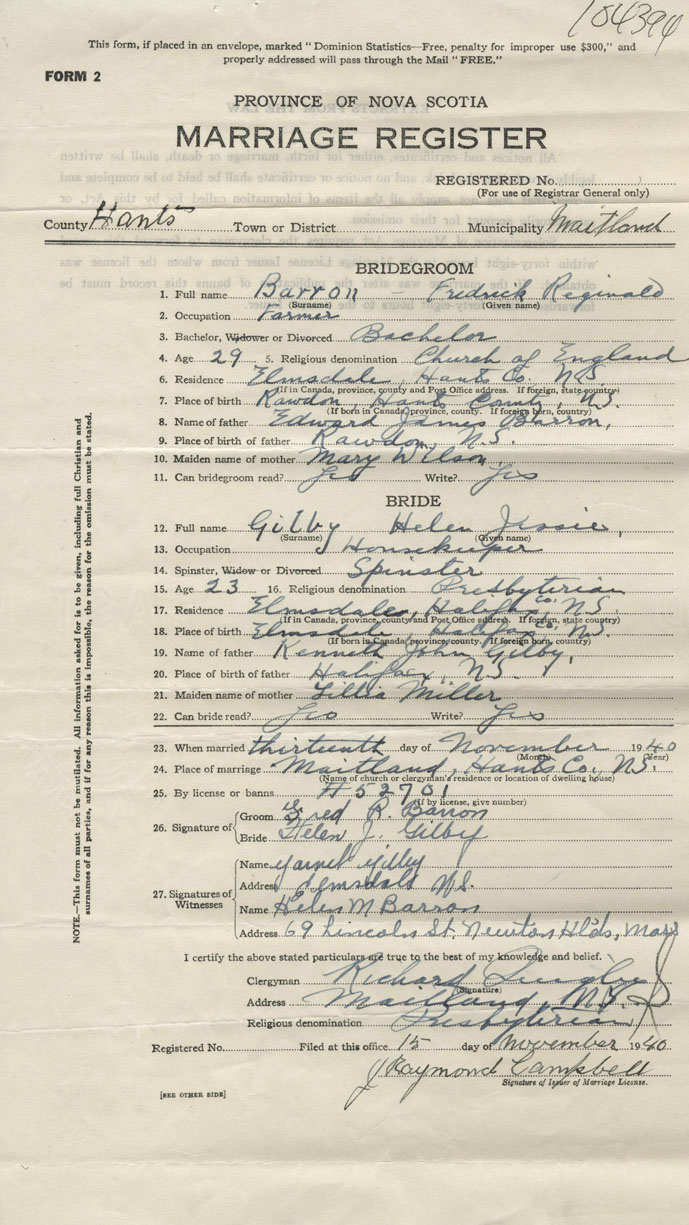 104394
This form, if placed in an envelope, marked "Dominion Statistics—Free, penalty for improper use $300," and
properly addressed will pass through the Mail "FREE."
FORM 2
PROVINCE OF NOVA SCOTIA
MARRIAGE REGISTER
REGISTERED No.
(For use of Registrar General only)
County Hants Town or District Municipality Maitland
BRIDEGROOM
1. Full name Barron - Fredrick Reginald
(Surname) (Given name)
2. Occupation Farmer
3. Bachelor, Widower or Divorced Bachelor
4. Age 29 5. Religious denomination Church of England
6. Residence Elmsdale, Hants Co. N.S.
(If in Canada, province, county and Post Office address. If foreign, state country)
7. Place of birth Rawdon, Hants County, N.S.
(If born in Canada, province, county. If foreign born, country)
8. Name of father Edward James Barron,
9. Place of birth of father Rawdon, N.S.
10. Maiden name of mother Mary Wilson
11. Can bridegroom read? Yes Write? Yes
BRIDE
12. Full name Gilby Helen Jessie,
(Surname) (Given name)
13. Occupation Housekeeper
14. Spinster, Widow or Divorced Spinster
15. Age 23 16. Religious denomination Presbyterian
17. Residence Elmsdale, Halifax Co. N.S.
(If in Canada, province, county and Post Office address. If foreign, state country)
18. Place of birth Elmsdale, Halifax Co. N.S.
(If born in Canada, province, county. If foreign born, country)
19. Name of father Kenneth John Gilby,
20. Place of birth of father Halifax, N.S.
21. Maiden name of mother Lillia Miller
22. Can bride read? Yes Write? Yes
23. When married thirteenth day of November 1940
(Month) (Year)
24. Place of marriage Maitland, Hants Co., N.S.
(Name of church or clergyman's residence or location of dwelling house)
25. By license or banns # 52701
(If by license, give number)
26. Signature of
Groom Fred R. Barron
Bride Helen J. Gilby
27. Signatures of Witnesses
Name Garnet Gilby
Address Elmsdale N.S.
Name Helen M Barron
Address 69 Lincoln St. Newton Hlds, Mass
I certify the above stated particulars are true to the best of my knowledge and belief.
Clergyman Richard
(Signature)
Address Maitland, N.S.
Religious denomination Presbyterian
Registered No. Filed at this office 15 day of November 1940
J Raymond Campbell
Signature of Issuer of Marriage License.
[SEE OTHER SIDE]
NOTE.—This form must not be mutilated. All information asked for is to be given, including full Christian and
surnames of all parties, and if for any reason this is impossible, the reason for the omission must be stated.